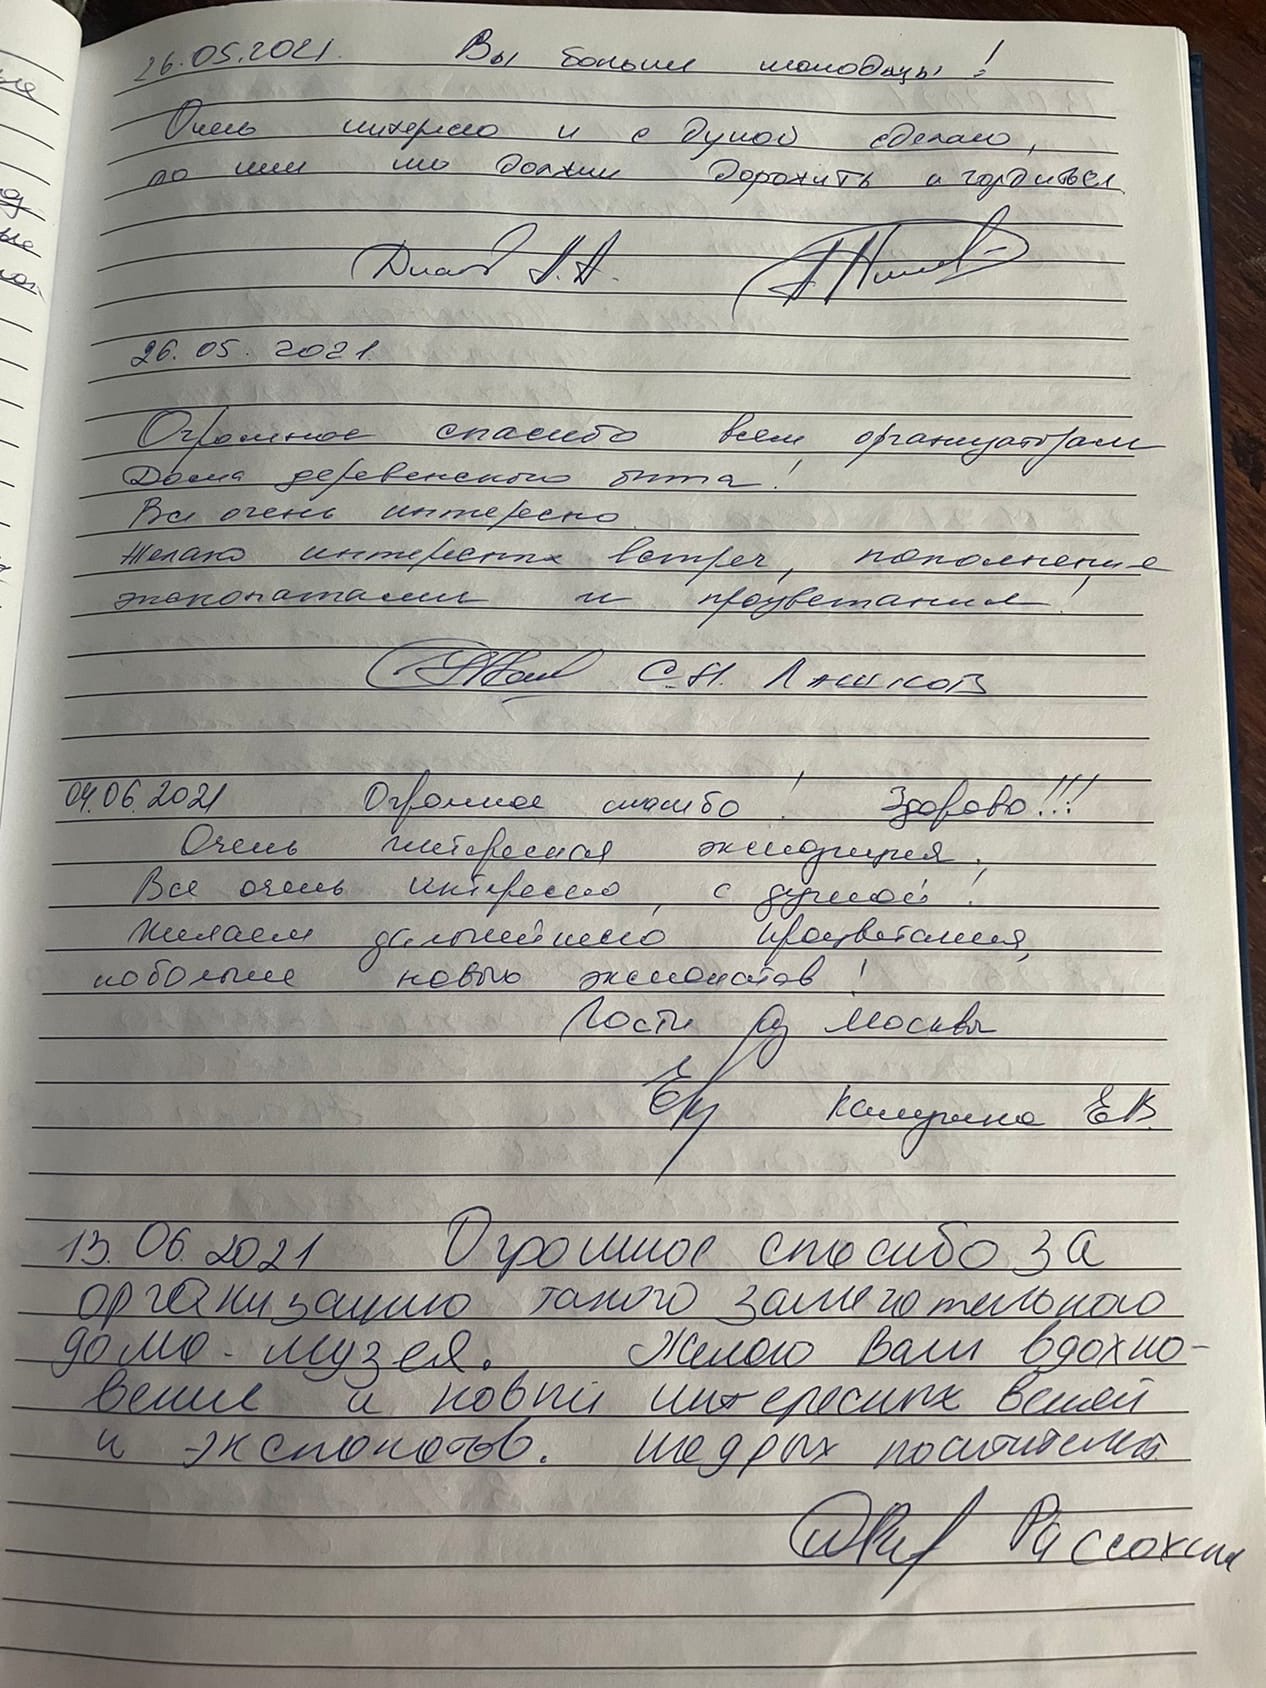 26.05.2021. Вы больши молодцы!
Очень интересно и с душой сделано,
мы должны дорожить и гордиться
26.05.2021.
Огромное спасибо всем организаторам
Дома деревенского быта!
Все очень интересно.
Желаю интересных встреч, пополнение
экспонатами и процветания!
С.Н. Ляшков
04.06.2021 Огромное спасибо! Здорово!!!
Очень интересная экспозиция.
Все очень интересно, с душой!
Желаем дальнейшего процветания,
побольше новых экспонатов!
Гости из Москвы
Е.В.
13.06.2021 Огромное спасибо за
организацию такого замечательного
дома-музея. Желаю Вам вдохно-
вения и новых интересных вещей
и экспонатов. Щедрых посетителей.
Рассохин